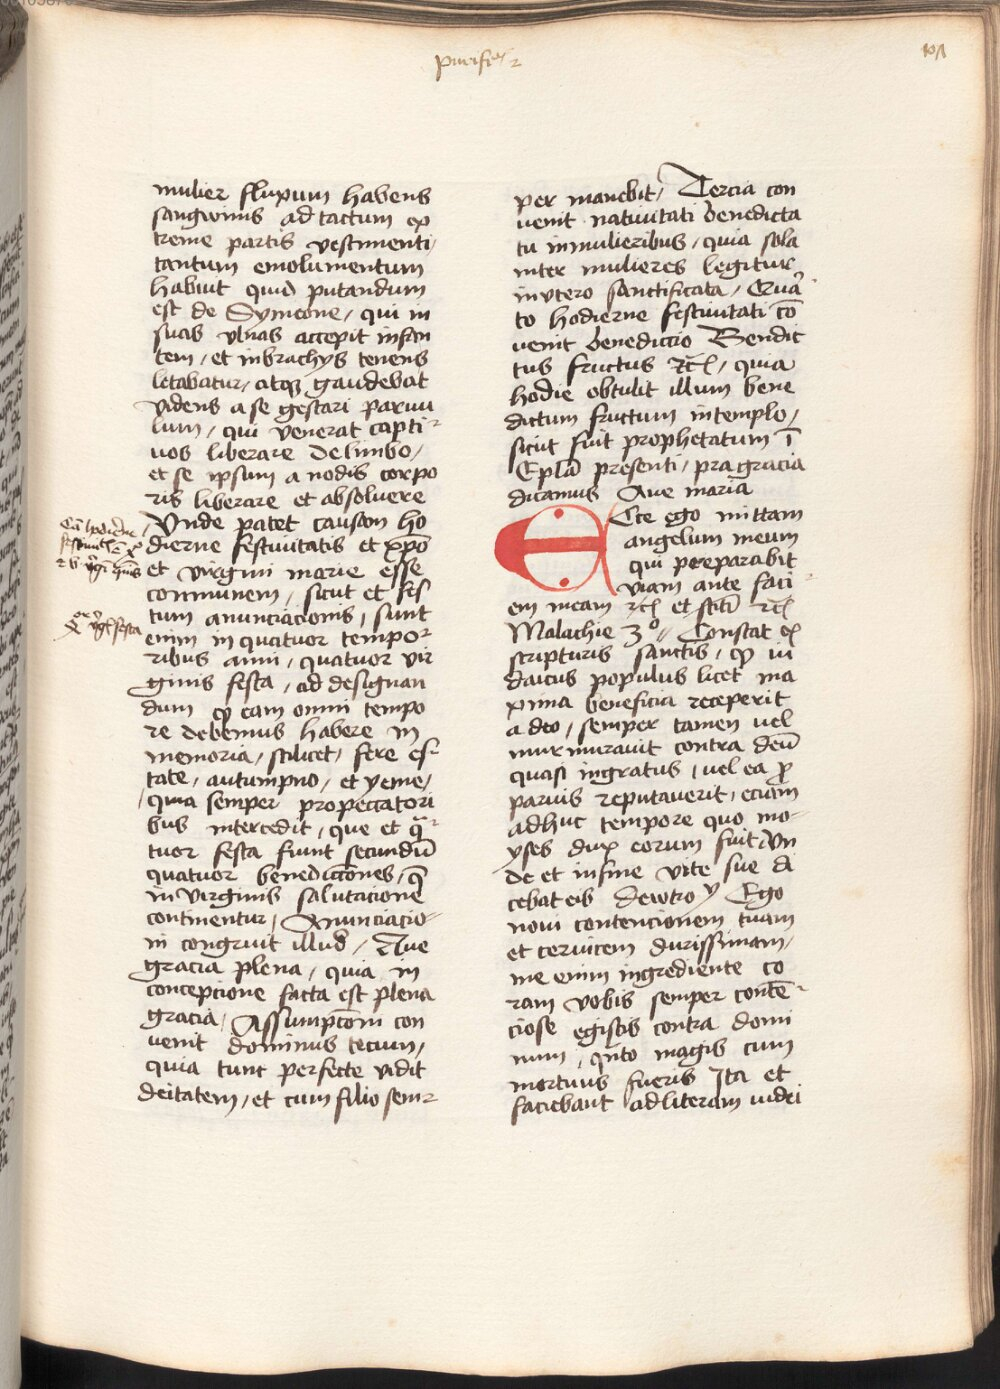 purific
101
mulier fluxum habens
sangwinis ad tactum ex
treme partis vestimenti
tantum emolumentum
habuit quid putandum
est de Symeone, qui in
suas vlnas accepit infan
tem, et inbrachys tenens
letabatur, atqȝ gaudebat
videns a se gestari paruu
lum, qui venerat capti-
uos liberare delimbo,
et se ipsum a nodis corpo
ris liberare et absoluere
Vnde patet causam ho
dierne festiuitatis et xp̄o
et virgini marie esse
communem, sicut et fes
tum anunciacionis, sunt
enim in quatuor tempo-
ribus anni, quatuor vir
ginis festa, ad designan
dum ꝙ eam omni tempo
re debemus habere in
memoria, scilicet, fere es-
tate, autumpno, et yeme,
quia semper propeccatori
bus intercedit, que et q̄-
tuor festa fiunt secundū
quatuor benedicc̄ones, q̄
in virginis salutacione
continentur, Anunciacio-
ni congruit illud, Aue
gracia plena, quia in
concepcione facta est plena
gracia, Assumpc̄oni con
uenit dominus tecum,
quia tunc perfecte vidit
deitatem, et cum filio sem-
per manebit, Tercia con
uenit natiuitati benedicta
tu inmulieribus, quia sola
inter mulieres legitur
invtero sanctificata, Quar
to hodierne festiuitati cō
uenit benedictio Bendic
tus fructus ꝛc̄, quia
hodie obtulit illum bene
dictum fructum intemplo,
sicut fuit prophetatum ī
Ep̄la presenti, pra gracia
dicamus Aue maria
Ecce ego mittam
angelum meum
qui preparabit
viam ante faci-
em meam ꝛc̄ et scīti ꝛc̄
Malachie 3º, Constat ex
scripturis sanctis, ꝙ iu
daicus populus licet ma
xima beneficia receperit
a deo, semper tamen uel
murmurauit contra deū
quasi ingratus, uel ea ꝓ
paruis reputauerit, eciam
adhuc tempore quo mo-
yses dux eorum fuit Vn
de et infine vite sue di
cebat eis Dewtro y Ego
noui contencionem tuam
et ceruicem durissimam,
me enim ingrediente co
ram vobis semper contē-
ciose egistis contra domi
num, qn̄to magis cum
mortuus fueris Ita et
faciebant adliteram iudei